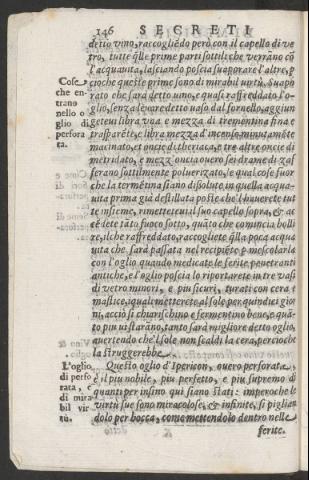 146 SECRETI
detto vino, raccogliẽdo però con il capello di ve
tro, tutte q̃lle prime parti sottili che verrãno cõ
l'acquavita, lasciando poscia suaporare l'altre, p
cioche queste prime sono di mirabil virtù. Suapo
rato che sarà detto vino, e quasi raffreddato l'o-
glio, senza leuare detto vaso dal fornello, aggiun
geteui libra vna e mezza di trementina fina e
trasparẽte, e libra mezza d'incenso minutamẽte
macinato, et oncie di theriaca, e tre altre oncie di
metridato, e mezz'oncia ouero sei drame di zaf
ferano sottilmente poluerizato, le quai cose fuor
che la termẽtina siano disolute in quella acqua-
uita prima già destillata posta che l'hauerete tut
te insieme, rimetteteui il suo capello sopra, & ac
cẽdete tãto fuoco sotto, quãto che comincia bolli
re, il che raffreddato, raccogliete q̃lla poca acqua
uita che sarà passata nel recipiẽte p mescolarle
con l'oglio quando medicate le ferite penetranti
antiche, e l'oglio poscia lo riportarete in tre vasi
di vetro minori, e piu sicuri, turati con cera e
mastice, i quali metterete al sole per quindici gior
ni, acciò si chiarischino e fermentino bene, e quã-
to piu ui starãno, tanto sarà migliore detto oglio,
auertendo che'l sole non scaldi la cera, percioche
la struggerebbe.
Questo oglio d'Ipericon, ouero perforata,
è il piu nobile, piu perfetto, e piu supremo di
quanti per insino qui siano stati: imperoche le
virtù sue sono miracolose, & infinite, si piglian
dolo per bocca, come mettendolo dentro nelle
ferite.
Cose
che en-
trano
nello o
glio di
perfora
ta.
L'oglio
di perfo
rata, è
di mira
bil vir
tù.